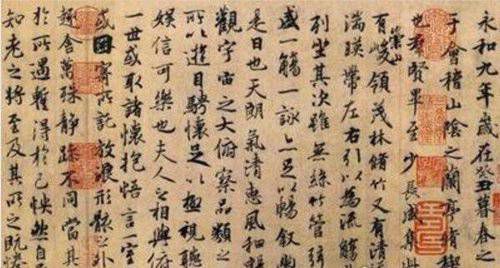 永和九年歲在癸丑暮春之
于會稽山陰之蘭亭脩禊
也羣賢畢至少長咸集此
有崇山峻領茂林脩竹又有清
湍暎帶左右引以為流觴
列坐其次雖無絲竹管絃
盛一觴一詠亦足以暢叙幽
是日也天朗氣清惠風和暢
觀宇宙之大俯察品類之
所以遊目騁懷足以極視聽
娛信可樂也夫人之相與俯
一世或取諸懷抱悟言一室
或因寄所託放浪形骸之外
趣舍萬殊靜躁不同當其
於所遇蹔得於己怏然自
知老之將至及其所之既惓